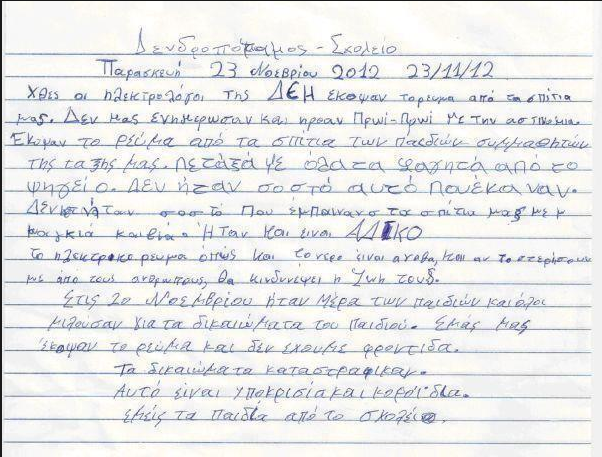 Δενδροπόταμος - Σχολείο
Παρασκευή 23 Νοεμβρίου 2012 23/11/12
Χθες οι ηλεκτρολόγοι της ΔΕΗ έκοψαν το ρευμα από τα σπίτια
μας. Δεν μας ενημερωσαν και ηρθαν Πρωί-Πρωί με την αστυνομια.
Έκοψαν το ρεύμα από τα σπίτια των παιδιών συμμαθητών
της ταξης μας. Πετάξαμε όλα τα φαγητά από το
ψηγείο. Δεν ήταν σοστό αυτό που έκαναν.
Δεν ήταν σοστό που έμπαιναν στα σπίτια μας με
μαγκιά και βία. Ήταν και είναι ΑΔΙΚΟ
το ηλεκτρικο ρευμα όπως και το νερο είναι αγαθα, και αν το στερήσουν
με από τους ανθρωπους, θα κινδυνέψει η Ζωη τους.
Στις 20 Νοεμβρίου ήταν Μέρα των παιδιών και όλοι
μιλουσαν για τα δικαιώματα του Παιδιού. Εμάς μας
έκοψαν το ρεύμα και δεν έχουμε φροντιδα.
Τα δικαιώματα καταστραφικαν.
Αυτό είναι υποκρισία και κοροϊδία.
Εμείς τα παιδιά από το σχολείο.